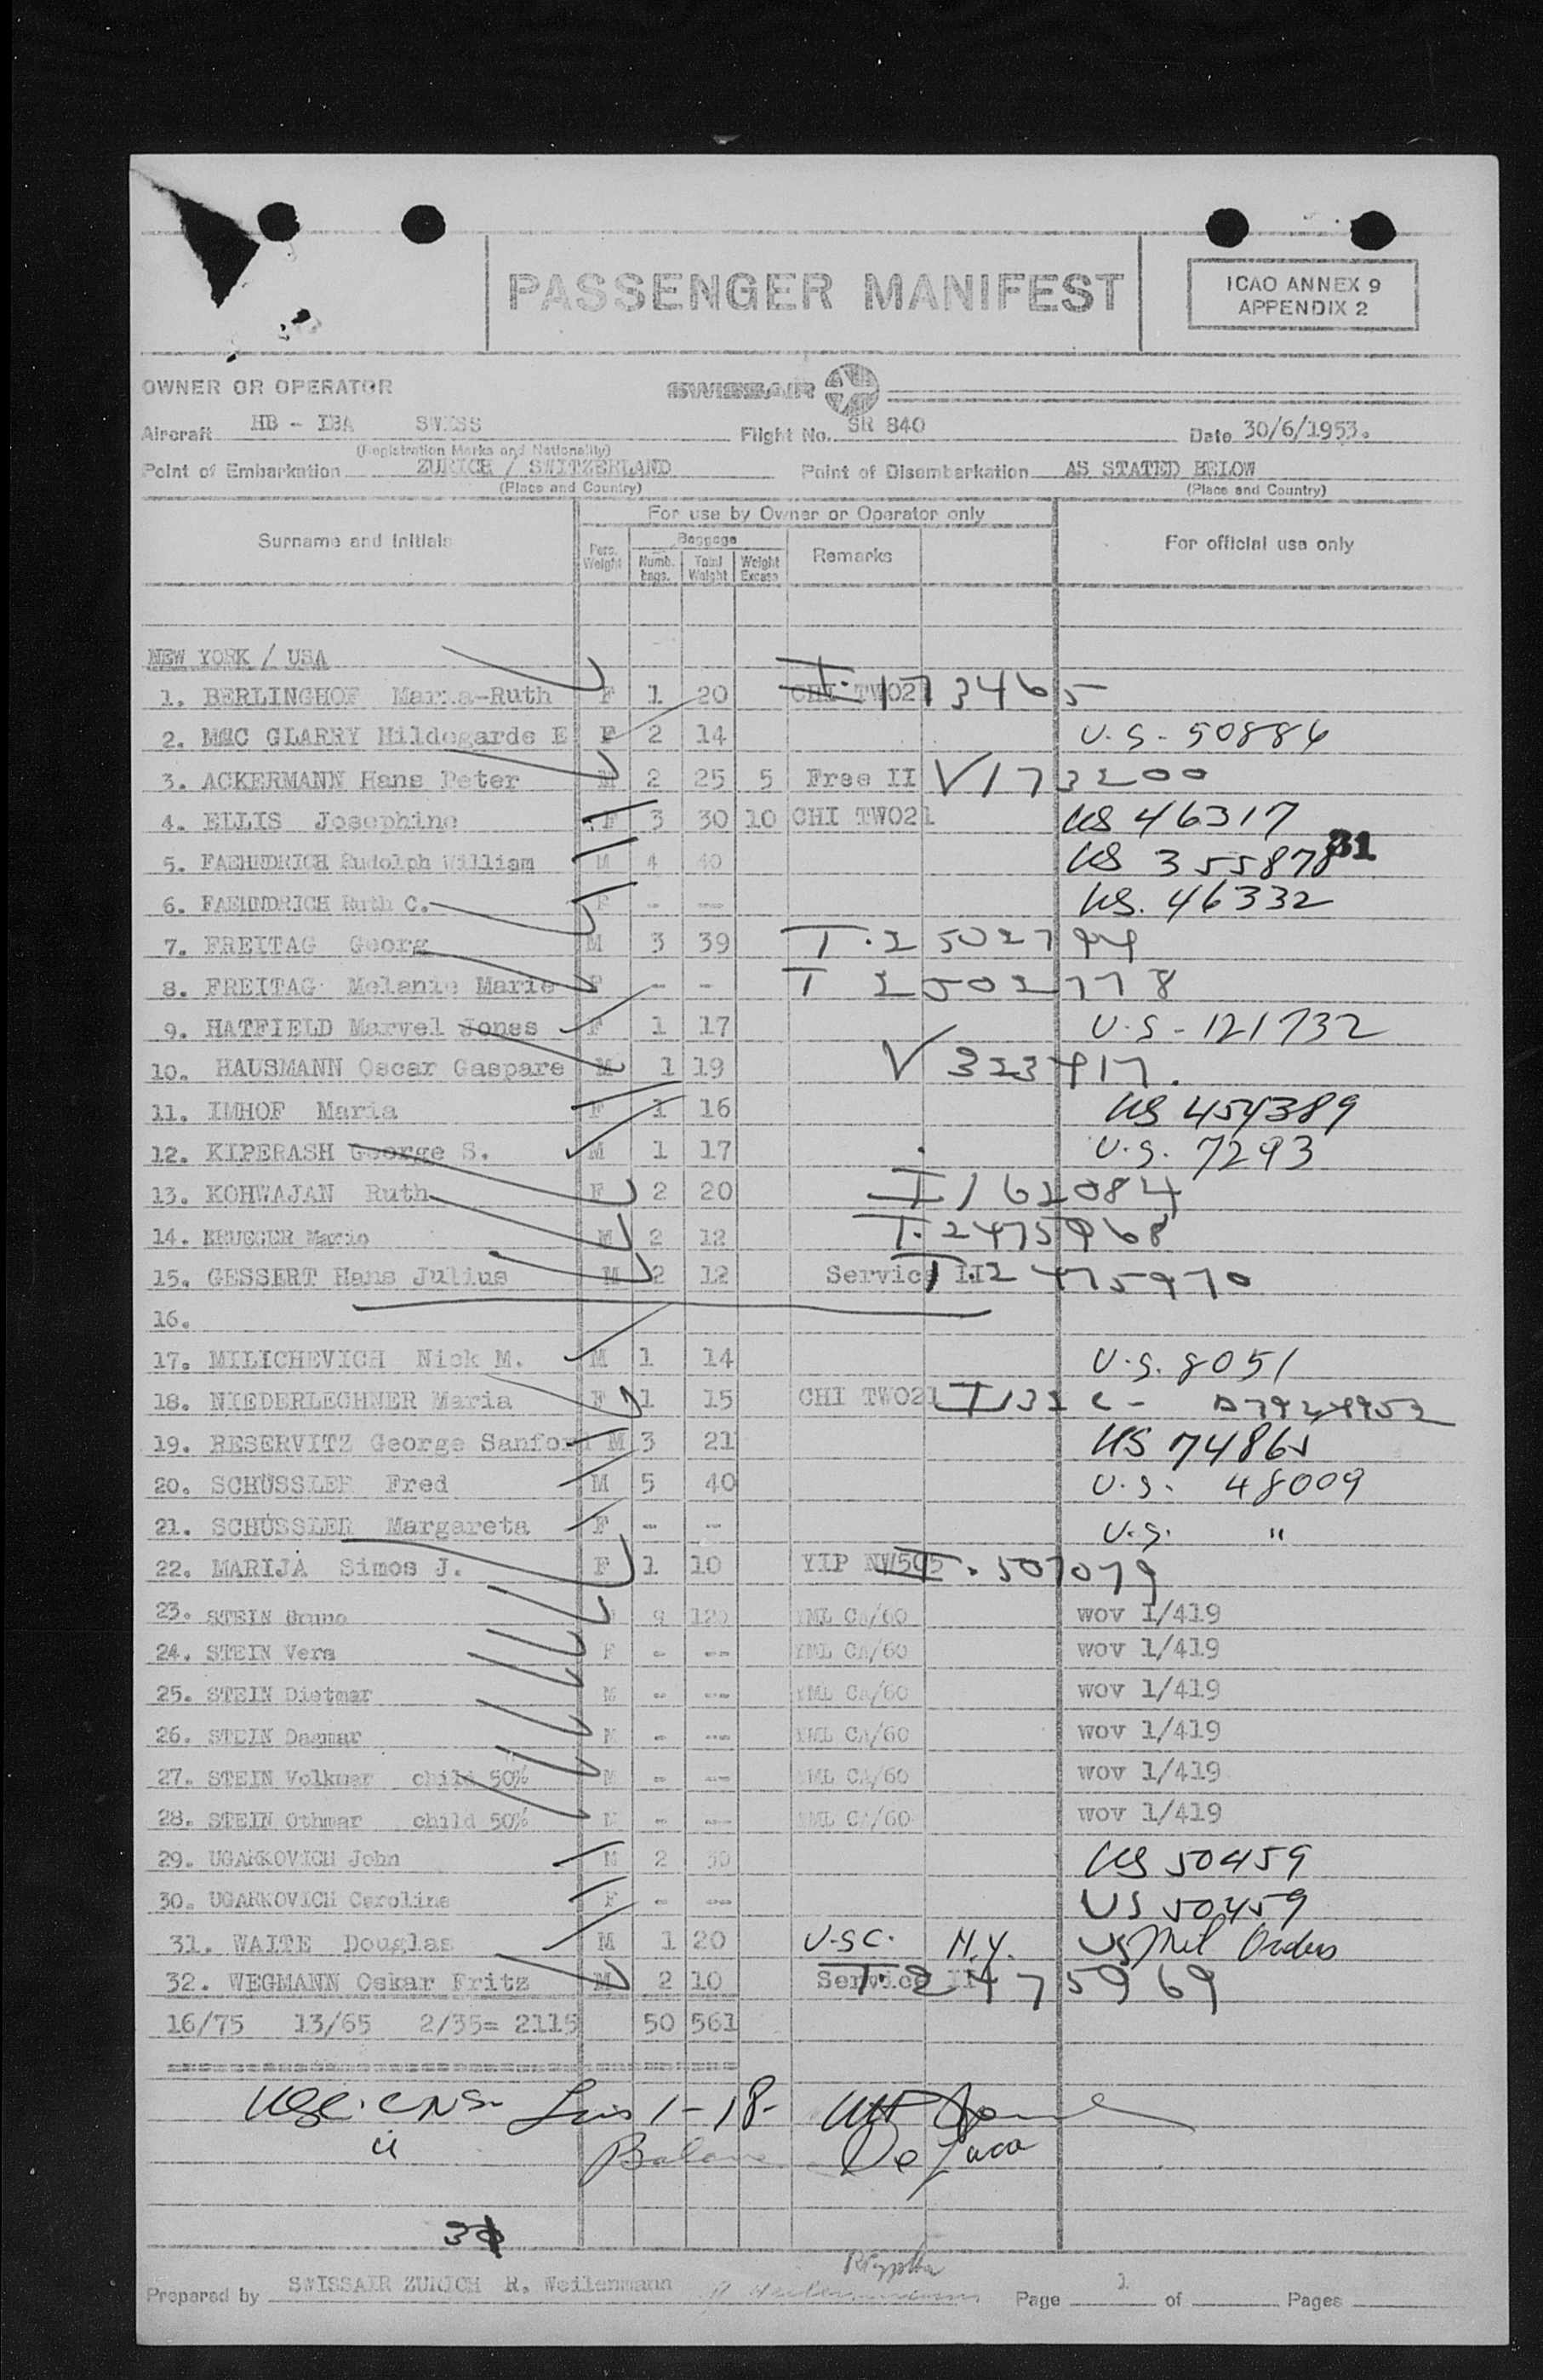 PASSENGER MANIFEST
ICAO ANNEX 9
APPENDIX 2
OWNER OR OPERATOR SWISSAIR
Aircraft HB - IBA SWISS Flight No. SR 840 Date 30/6/1953.
(Registration Marks and Nationality)
Point of Embarkation ZURICH / SWITZERLAND Point of Disembarkation AS STATED BELOW
(Place and Country) (Place and Country)
For use by Owner or Operator only
Surname and Initials Pers. Weight Baggage Numb. bags. Total Weight Weight Excess Remarks For official use only
NEW YORK / USA
1. BERLINGHOF Maria-Ruth F 1 20 CHI TWO21 I. 173465
2. MMC GLARRY Hildegarde E F 2 14 U.S. 50884
3. ACKERMANN Hans Peter M 2 25 5 Free II V 173200
4. ELLIS Josephine F 3 30 10 CHI TWO21 US 46317
5. FAEHNDRICH Rudolph William M 4 40 US 355878 31
6. FAEHNDRICH Ruth C. F - -- US. 46332
7. FREITAG Georg M 3 39 T.2502799
8. FREITAG Melanie Marie F - - T 2502778
9. HATFIELD Marvel Jones F 1 17 U.S - 121732
10. HAUSMANN Oscar Gaspare M 1 19 V 323917.
11. IMHOF Maria F 1 16 US 454389
12. KIPERASH George S. M 1 17 U.S. 7293
13. KOHWAJAN Ruth F 2 20 I 162084
14. KRUEGER Mario M 2 12 T.2475968
15. GESSERT Hans Julius M 2 12 Service II T.2475970
16.
17. MILICHEVICH Nick M. M 1 14 U.S. 8051
18. NIEDERLECHNER Maria F 1 15 CHI TWO21 I 132 C -
19. RESERVITZ George Sanford M 3 21 US 74865
20. SCHÜSSLER Fred M 5 40 U.S. 48009
21. SCHÜSSLER Margareta F - -- U.S. "
22. MARIJA Simos J. F 1 10 YIP NW505 I. 507079
23. STEIN Bruno 9 120 YML CA/60 wov 1/419
24. STEIN Vera F - -- YML CA/60 wov 1/419
25. STEIN Dietmar M - -- YML CA/60 wov 1/419
26. STEIN Dagmar M - --- YML CA/60 wov 1/419
27. STEIN Volkmar child 50% M - -- YML CA/60 wov 1/419
28. STEIN Othmar child 50% M - -- YML CA/60 wov 1/419
29. UGARKOVICH John M 2 30 US 50459
30. UGARKOVICH Caroline F - -- US 50459
31. WAITE Douglas M 1 20 U.S.C. N.Y. US Mil Orders
32. WEGMANN Oskar Fritz M 2 10 Service II T.2475969
16/75 13/65 2/35= 2115 50 561
USC. Lines 1-18-
" Balance De Luca
Prepared by SWISSAIR ZURICH R. Weilenmann Page 1 of Pages